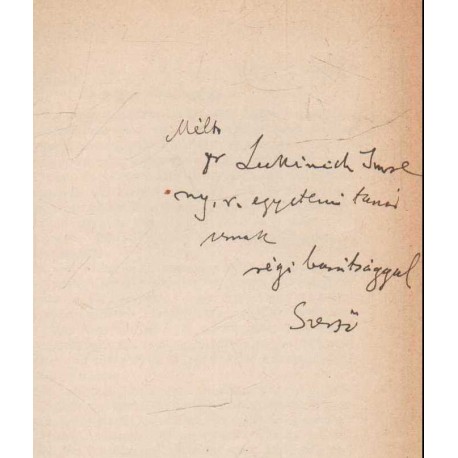 Mélt.
gr Lukinich Imre
ny. r. egyetemi tanár
urnak
régi barátsággal
Szerző